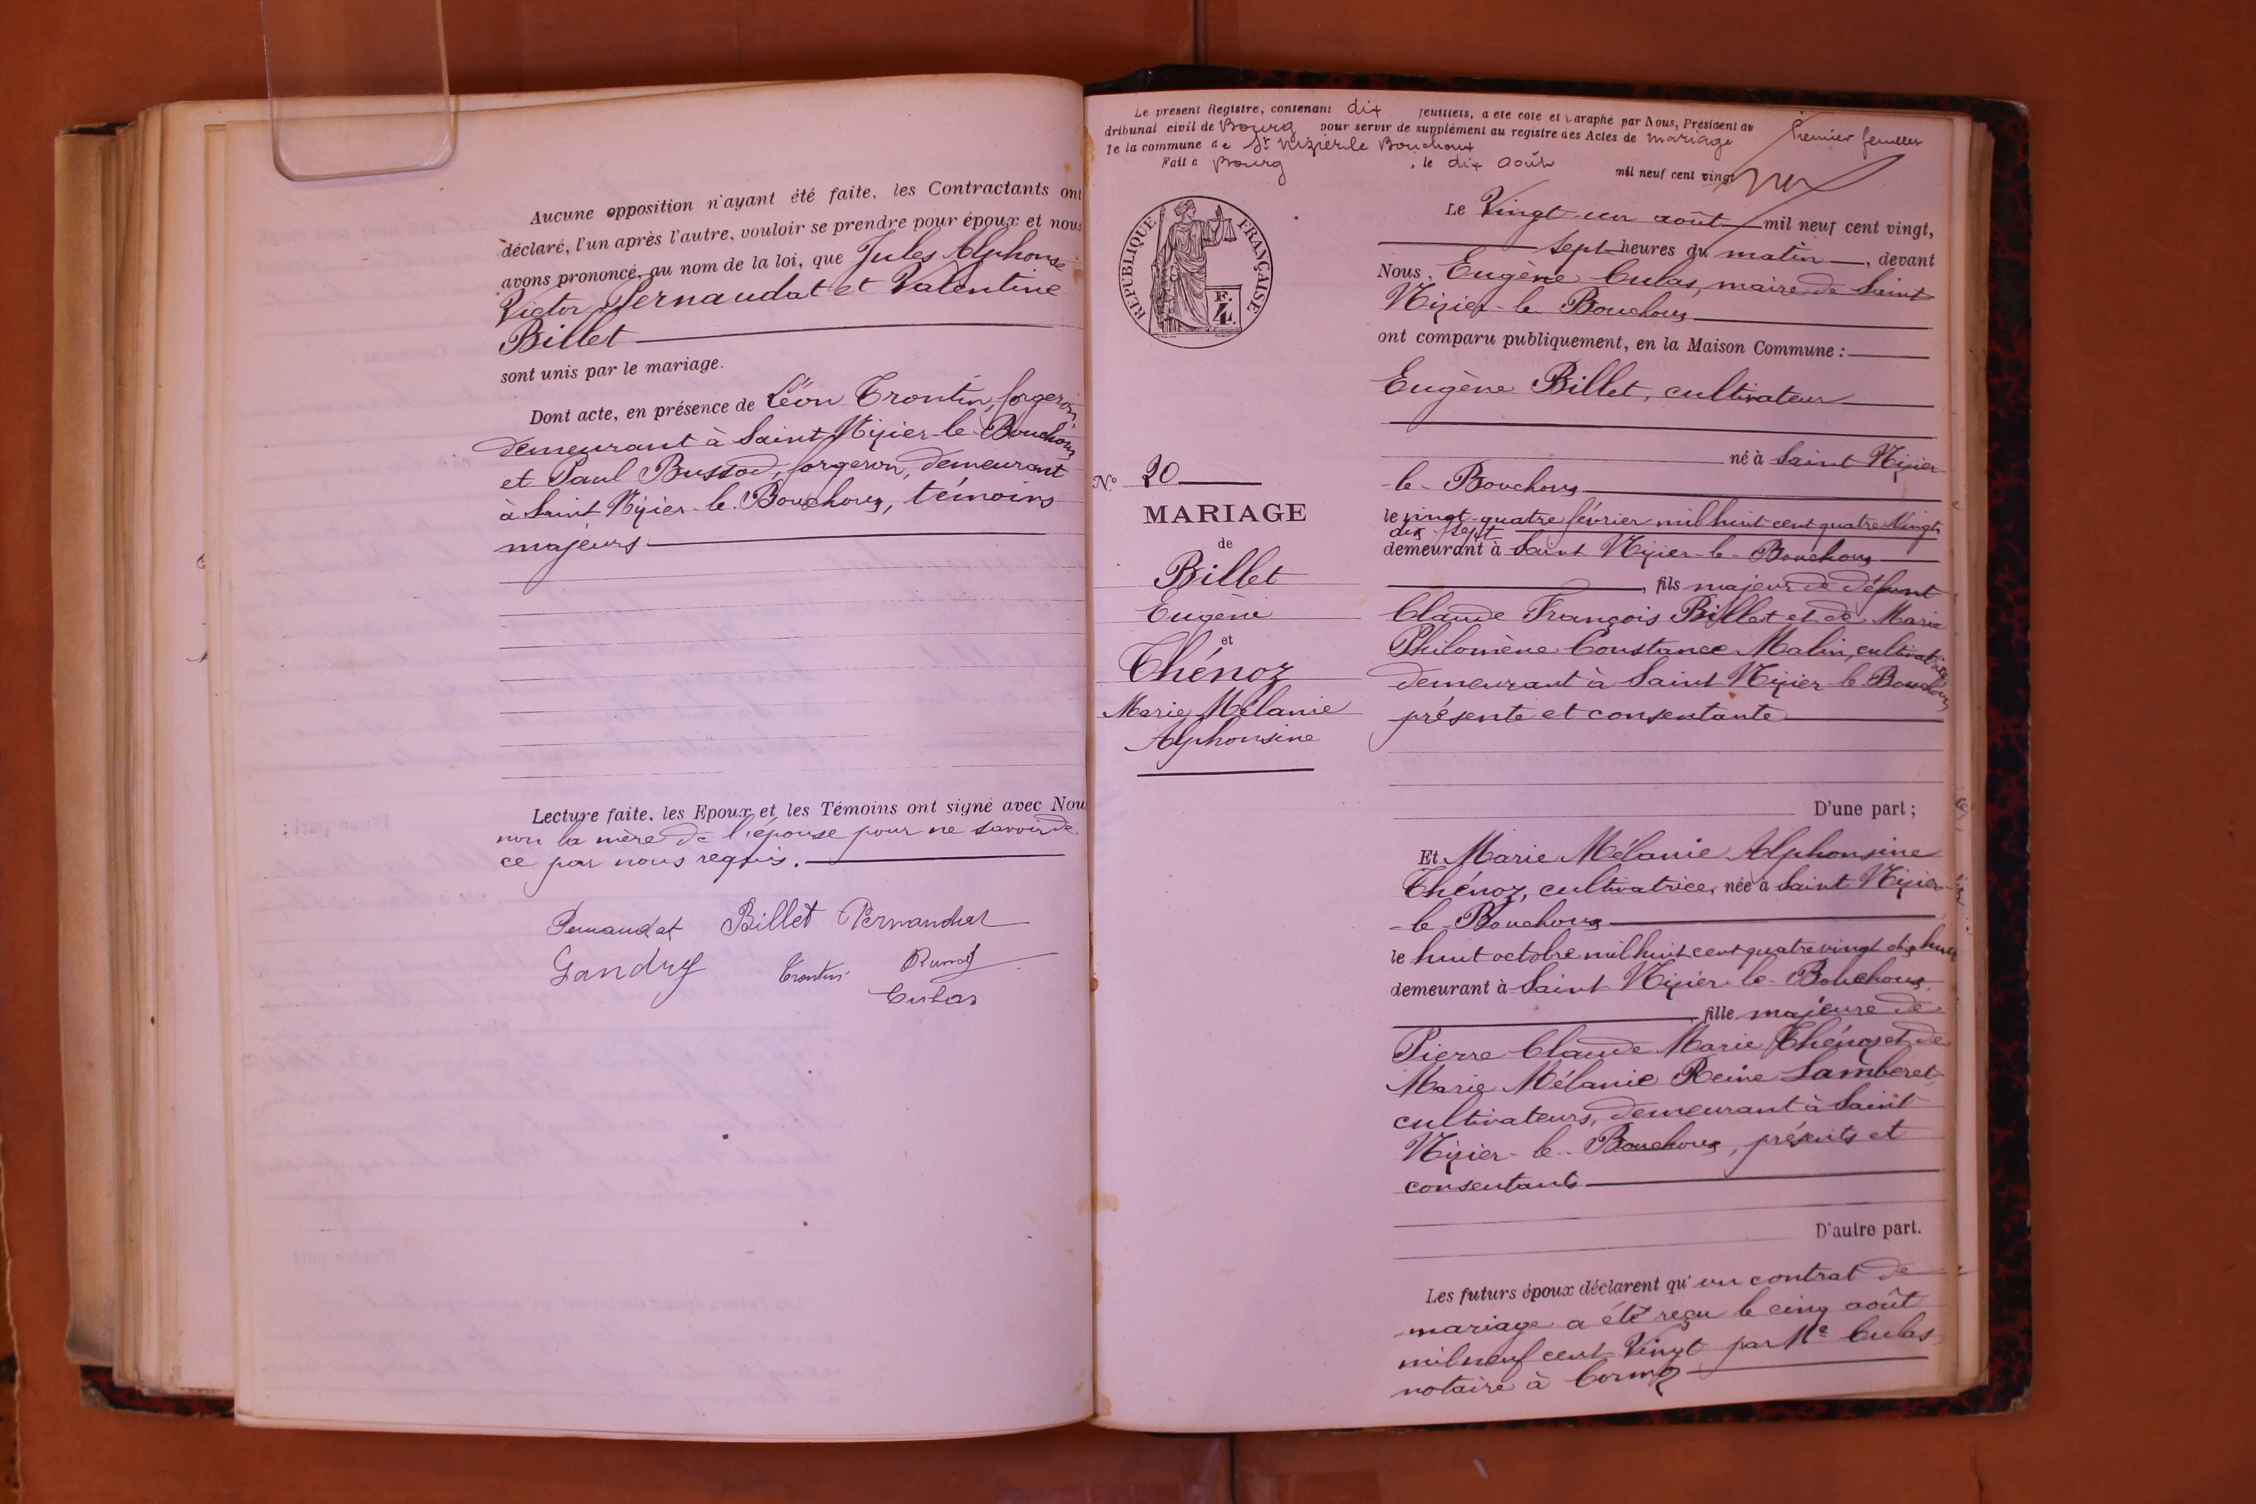 Aucune opposition n'ayant été faite, les Contractants ont
déclaré, l'un après l'autre, vouloir se prendre pour époux et nous
avons prononcé, au nom de la loi, que Jules Alphonse
Victor Pernaudat et Valentine
Billet
sont unis par le mariage.
Dont acte, en présence de Léon Trontin, forgeron,
demeurant à Saint Nizier-le-Bouchoux
et Paul Bussod, forgeron, demeurant
à Saint Nizier-le-Bouchoux, témoins
majeurs
Lecture faite, les Epoux et les Témoins ont signé avec Nou
non la mère de l'épouse pour ne savoir de
ce par nous requis.
Pernaudat Billet Pernaudat
Gandry Trontin
Culas
Le présent Registre, contenant dix feuillets, a été coté et paraphé par Nous, Président du
tribunal civil de Bourg pour servir de supplément au registre des Actes de mariage
de la commune de St Nizier le Bouchoux
Fait à Bourg, le dix août mil neuf cent vingt
Premier feuillet
RÉPUBLIQUE FRANÇAISE
F.
4.
Le Vingt un août mil neuf cent vingt,
sept heures du matin, devant
Nous, Eugène Culas, maire de Saint
Nizier-le-Bouchoux
ont comparu publiquement, en la Maison Commune :
Eugène Billet, cultivateur
né à Saint Nizier
-le-Bouchoux
le vingt-quatre février mil huit cent quatre vingt
dix sept
demeurant à Saint Nizier-le-Bouchoux
, fils majeur de défunt
Claude François Billet et de Marie
Philomène Constance Malin, cultivatrice
demeurant à Saint Nizier-le-Bouchoux
présente et consentante
D'une part ;
N° 20
MARIAGE
de
Billet
Eugène
et
Thénoz
Marie Mélanie
Alphonsine
Et Marie Mélanie Alphonsine
Thénoz, cultivatrice, née à Saint Nizier
-le-Bouchoux
le huit octobre mil huit cent quatre vingt dix huit
demeurant à Saint Nizier-le-Bouchoux,
fille majeure de
Pierre Claude Marie Thénoz et de
Marie Mélanie Reine Lamberet,
cultivateurs, demeurant à Saint
Nizier-le-Bouchoux, présents et
consentants
D'autre part.
Les futurs époux déclarent qu'un contrat de
mariage a été reçu le cinq août
mil neuf cent Vingt par Me Culas
notaire à Cormoz